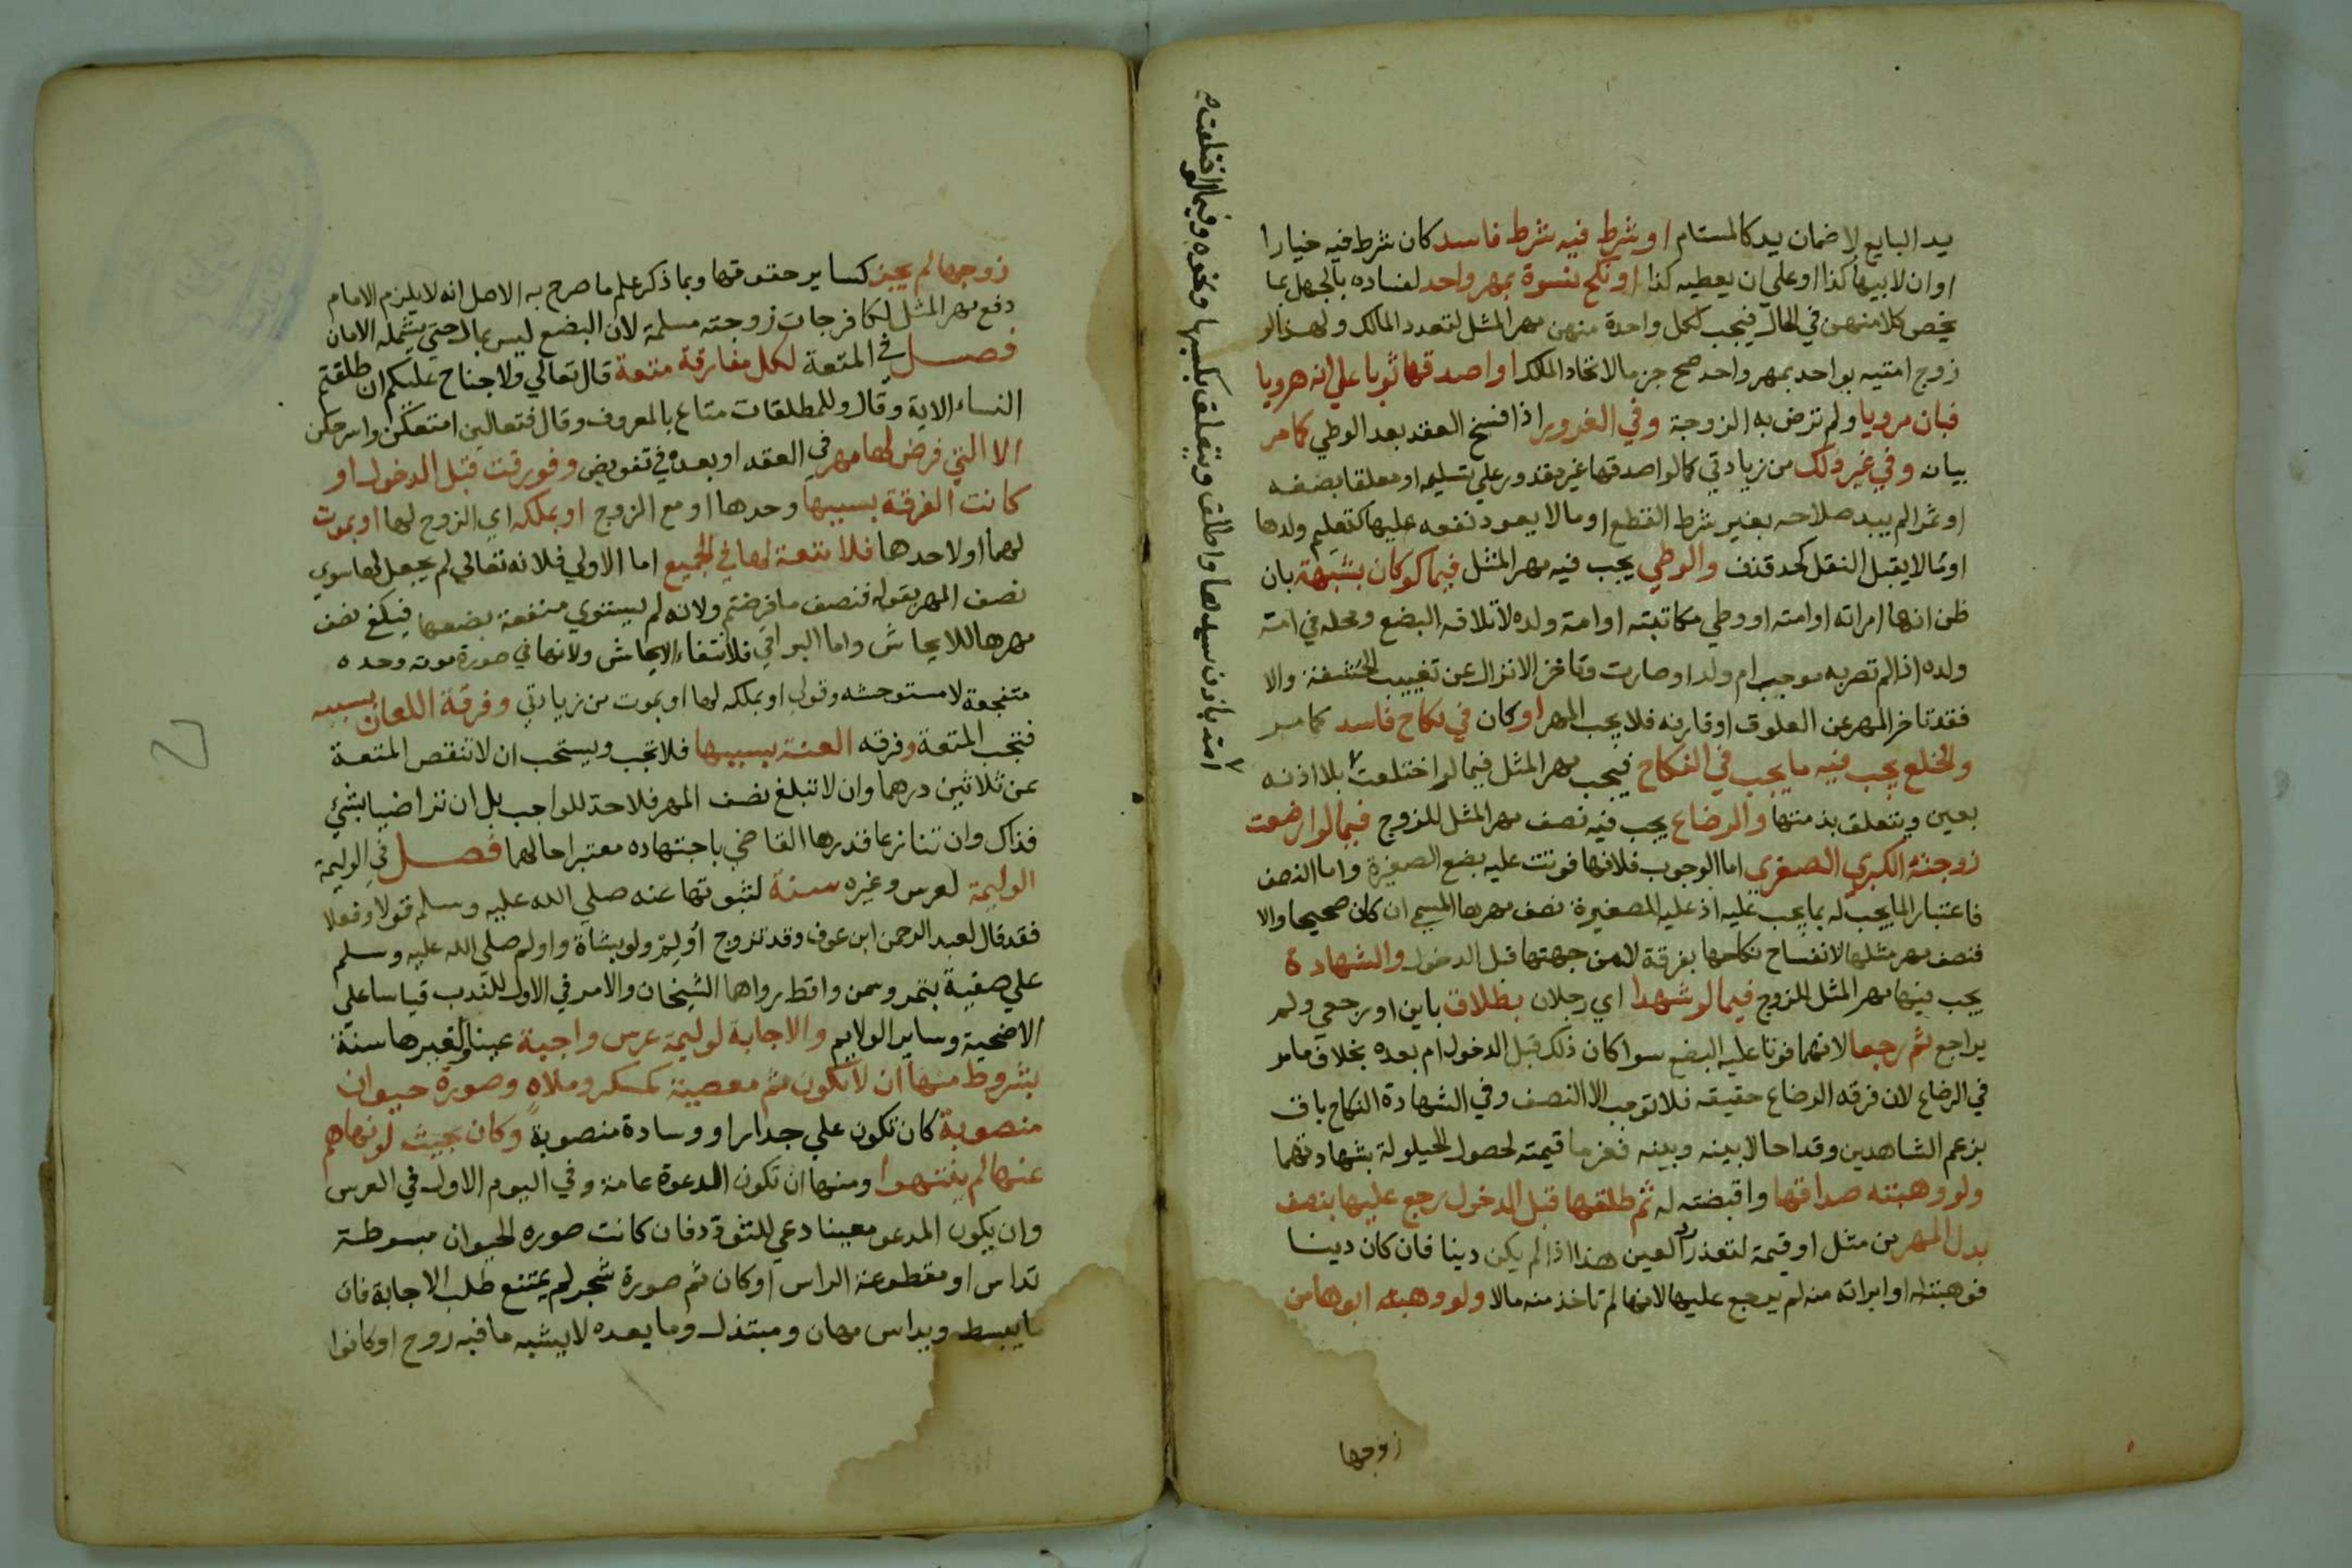 يد البايع لا ضمان يد كالمستام او شرط فيه شرط فاسد كان شرط فيه خيارا
او ان لابيها كذا او علي ان يعطيه كذا او نكح نسوة بمهر واحد لفساده بالجهل بما
يخص كلا منهن في الحال فيجب لكل واحدة منهن مهر المثل لتعدد المالك ولهذا لو
زوج امتيه بواحد بمهر واحد صح جزما لاتحاد المالك او اصدقها ثوبا علي انه هرويا
فبان مرويا ولم ترض به الزوجة وفي الغرور اذا فسخ العقد بعد الوطي كما مر
بيانه وفي غير ذلك من زيادتي كما لو اصدقها غير مقدور علي تسليمه او معلقا بصفه
او ثمرا لم يبد صلاحه بغير شرط القطع او ما لا يعود نفعه عليها كتعليم ولدها
او مما لا يقبل النقل كحد قذف والوطي يجب فيه مهر المثل فيما لو كان بشبهة بان
ظن انها امراته او امته او وطي مكاتبته او امة ولده لاتلافه البضع ومحله في امة
ولده اذا لم تصر به موجب ام ولد او صارت وتاخر الانزال عن تغييب الحشفة والا
فقد تاخر المهر عن العلوق او قارنه فلا يجب المهر او كان في نكاح فاسد كما مر
والخلع يجب فيه ما يجب في النكاح فيجب مهر المثل فيما لو اختلعت بلا اذنه
بعين ويتعلق بذمتها والرضاع يجب فيه نصف مهر المثل للزوج فيما لو ارضعت
زوجته الكبري الصغري اما الوجوب فلانها فوتت عليه بضع الصغيرة واما النصف
فاعتبارا لما يجب له بما يجب عليه اذ عليه للصغيرة نصف مهرها المسمي ان كان صحيحا والا
فنصف مهر مثلها لانفساخ نكاحها بفرقة لا من جهتها قبل الدخول والشهادة
يجب فيها مهر المثل للزوج فيما لو شهدا اي رجلان بطلاق باين او رجعي ولم
يراجع ثم رجعا لانهما فوتا عليه البضع سوا كان ذلك قبل الدخول ام بعده بخلاف ما مر
في الرضاع لان فرقه الرضاع حقيقه فلا توجب الا النصف وفي الشهادة النكاح باق
بزعم الشاهدين وقد احالا بينه وبينه فغرما قيمته لحصول الحيلولة بشهادتهما
ولو وهبته صداقها واقبضته له ثم طلقها قبل الدخول رجع عليها بنصف
بدل المهر من مثل او قيمة لتعذر رد العين هذا اذا لم يكن دينا فان كان دينا
فوهبته او ابراته منه لم يرجع عليها لانها لم تاخذ منه مالا ولو وهبته ابوها من
زوجها
امته باذن سيدها واطلق ويتعلق بكسبها ونحوه وفيما لو اختلعت
زوجها لم يجز كساير حقوقها وبما ذكر علم ما صرح به الاصل انه لا يلزم الامام
دفع مهر المثل لكافر جات زوجته مسلمة لان البضع ليس بمال حتي يشمله الامان
فصل في المتعة لكل مفارقة متعة قال تعالي ولا جناح عليكم ان طلقتم
النساء الاية وقال وللمطلقات متاع بالمعروف وقال فتعالين امتعكن واسرحكن
الا التي فرض لها مهر في العقد او بعده في تفويض وفورقت قبل الدخول او
كانت الفرقة بسببها وحدها او مع الزوج او بملكه اي الزوج لها او بموت
لهما او لاحدها فلا متعة لها في الجميع اما الاولي فلانه تعالي لم يجعل لها سوي
نصف المهر بقوله فنصف ما فرضتم ولانه لم يستوي منفعة بضعها فيكفي نصف
مهرها للايحاش واما البواقي فلانتفاء الايحاش ولانها في صورة موته وحده
متفجعة لا مستوحشه وقولي او بملكه لها او بموت من زيادتي وفرقة اللعان بسببه
فتجب المتعة وفرقه العنة بسببها فلا تجب ويستحب ان لا تنقص المتعة
عن ثلاثين درهما وان لا تبلغ نصف المهر فلا حد للواجب بل ان تراضيا بشئ
فذاك وان تنازعا قدرها القاضي باجتهاده معتبرا حالهما فصل في الوليمة
الوليمة لعرس وغيره سنة لثبوتها عنه صلي الله عليه وسلم قولا وفعلا
فقد قال لعبد الرحمن ابن عوف وقد تزوج أولم ولو بشاة واولم صلي الله عليه وسلم
علي صفية بتمر وسمن واقط رواها الشيخان والامر في الاول للندب قياسا علي
الاضحية وساير الولايم والاجابة لوليمة عرس واجبة عينا ولغيرها سنة
بشروط منها ان لا تكون ثم معصية كمسكر وملاه وصورة حيوان
منصوبة كان تكون علي جدار او وسادة منصوبة وكان بحيث لو نهاهم
عنها لم ينتهوا ومنها ان تكون الدعوة عامة وفي اليوم الاول في العرس
وان يكون المدعو معينا دعي للتودد فان كانت صوره الحيوان مبسوطة
تداس او مقطوعة الراس او كان ثم صورة شجر لم يمتنع طلب الاجابة فان
ما يبسط ويداس مهان ومبتذل وما بعده لا يشبه ما فيه روح او كانوا